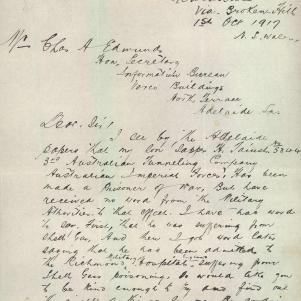 Via. Broken Hill
1st Oct 1917
N. S. Wales
Mr Chas A Edmunds
Hon. Secretary
Information Bureau
Verco Buildings
North Terrace
Adelaide Sa.
Dear Sir
I see by the Adelaide
Papers that my son Sapper H.
3rd Australian Tunneling Company
Australian Imperial Forces Has been
made a Prisoner of War, But have
received no word from the Military
Athorities to that effect. I have had word
to say. First, that he was suffering from
Shell Gas, And then I got word later
saying that he has been admitted to
the Richmond Military Hospital suffering from
Shell Gas poisoning. So would like you
to be kind enough to try and find out